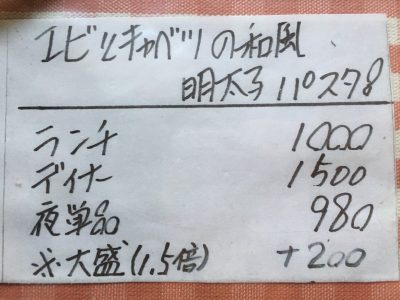 エビとキャベツの和風
明太子パスタ8
ランチ 1000
ディナー 1500
夜単品 980
※大盛(1.5倍) +200